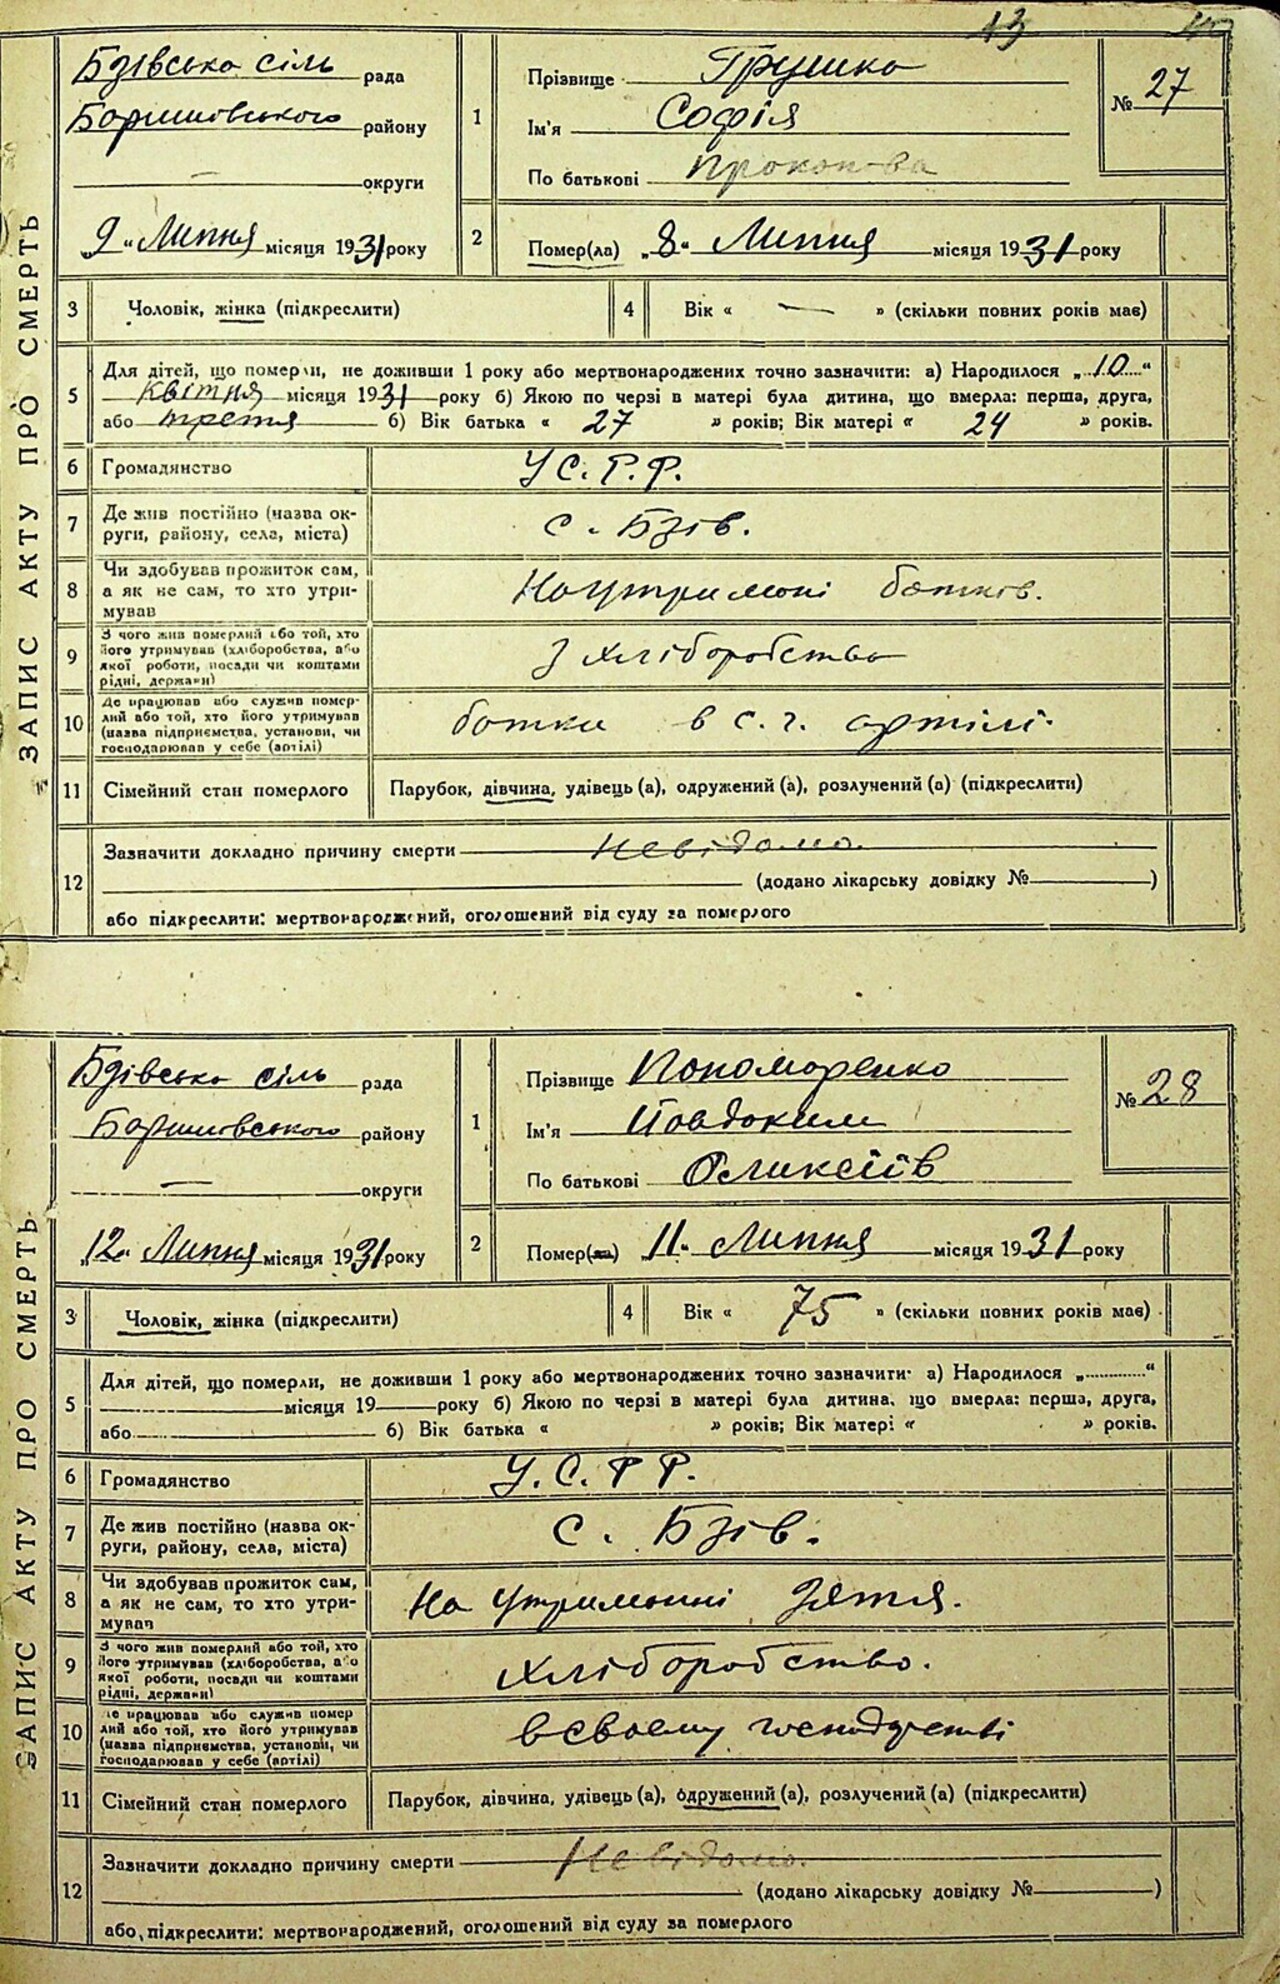 13
ЗАПИС АКТУ ПРО СМЕРТЬ
Бзівська сіль рада
Баришовського району
— округи
9 „ Липня місяця 1931 року
1
Прізвище Грушко
Ім'я Софія
По батькові Прокопова
№ 27
2
Помер(ла) „8“ Липня місяця 1931 року
3 Чоловік, жінка (підкреслити)
4 Вік « — » (скільки повних років має)
5 Для дітей, що померли, не доживши 1 року або мертвонароджених точно зазначити: а) Народилося „10“
Квітня місяця 1931 року б) Якою по черзі в матері була дитина, що вмерла: перша, друга,
або третя б) Вік батька « 27 » років; Вік матері « 24 » років.
6 Громадянство УС.Р.Р.
7 Де жив постійно (назва ок-
руги, району, села, міста) с. Бзів.
8 Чи здобував прожиток сам,
а як не сам, то хто утри-
мував На утримані батьків.
9 З чого жив померлий або той, хто
його утримував (хліборобства, або
якої роботи, посади чи коштами
рідні, держави) З хліборобства
10 Де працював або служив помер-
лий або той, хто його утримував
(назва підприємства, установи, чи
господарював у себе (артілі) батько в с.г. артілі.
11 Сімейний стан померлого Парубок, дівчина, удівець (а), одружений (а), розлучений (а) (підкреслити)
12 Зазначити докладно причину смерти Невідомо.
(додано лікарську довідку № )
або підкреслити: мертвонароджений, оголошений від суду за померлого
ЗАПИС АКТУ ПРО СМЕРТЬ
Бзівська сіль рада
Баришовського району
— округи
„12“ Липня місяця 1931 року
1
Прізвище Пономаренко
Ім'я Йовдоким
По батькові Оликсіїв
№ 28
2
Помер(ла) 11“ Липня місяця 1931 року
3 Чоловік, жінка (підкреслити)
4 Вік « 75 » (скільки повних років має)
5 Для дітей, що померли, не доживши 1 року або мертвонароджених точно зазначити: а) Народилося „ “
місяця 19 року б) Якою по черзі в матері була дитина, що вмерла: перша, друга,
або б) Вік батька « » років; Вік матері « » років.
6 Громадянство У.С.РР.
7 Де жив постійно (назва ок-
руги, району, села, міста) с. Бзів.
8 Чи здобував прожиток сам,
а як не сам, то хто утри-
мував На утриманні Зятя.
9 З чого жив померлий або той, хто
його утримував (хліборобства, або
якої роботи, посади чи коштами
рідні, держави) Хліборобство.
10 Де працював або служив помер
лий або той, хто його утримував
(назва підприємства, установи, чи
господарював у себе (артілі) в своему
11 Сімейний стан померлого Парубок, дівчина, удівець (а), одружений (а), розлучений (а) (підкреслити)
12 Зазначити докладно причину смерти Невідомо.
(додано лікарську довідку № )
або підкреслити: мертвонароджений, оголошений від суду за померлого